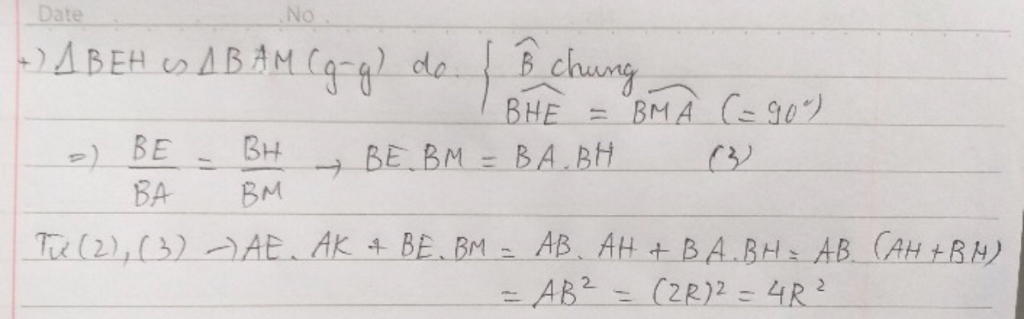 Date No.
+) ΔBEH ∽ ΔBAM (g-g) do { B̂ chung
BHE = BMA (= 90°)
=) BE/BA = BH/BM → BE.BM = BA.BH (3)
Từ (2), (3) → AE. AK + BE. BM = AB. AH + BA.BH = AB. (AH + BH)
= AB² = (2R)² = 4R²